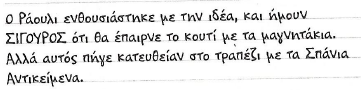 Ο Ράουλι ενθουσιάστηκε με την ιδέα, και ήμουν
ΣΙΓΟΥΡΟΣ ότι θα έπαιρνε το κουτί με τα μαγνητάκια.
Αλλά αυτός πήγε κατευθείαν στο τραπέζι με τα Σπάνια
Αντικείμενα.